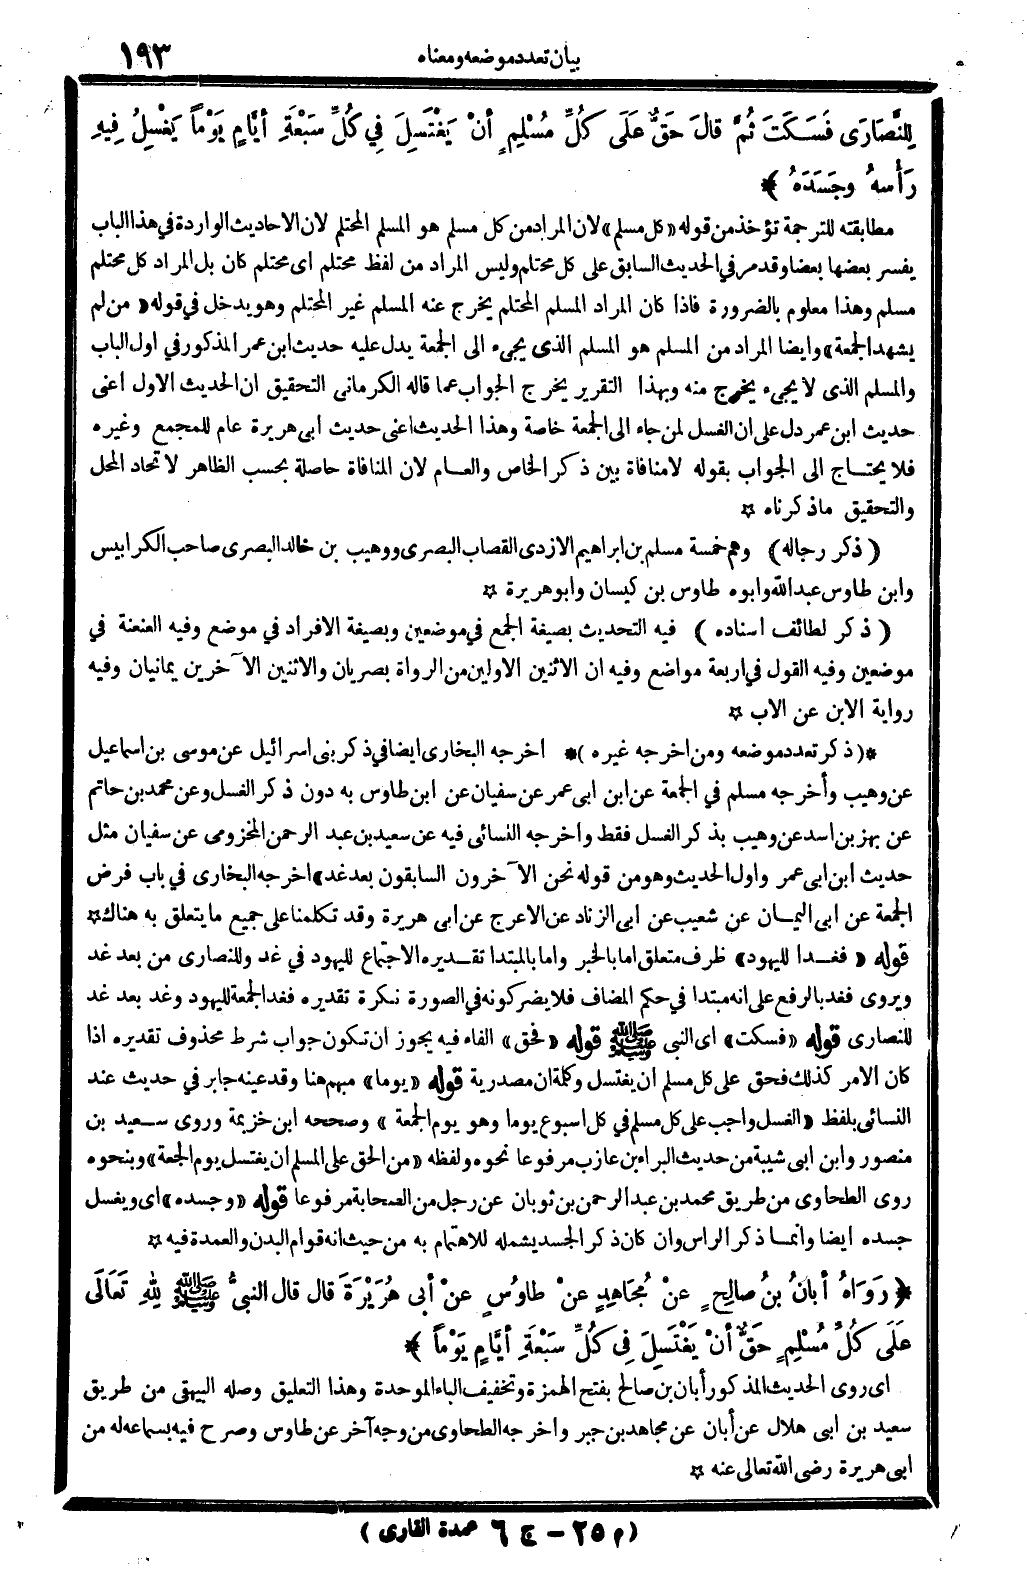 بيان تعدد موضعه ومعناه ١٩٣
لِلنَّصَارَى فَسَكَتَ ثُمَّ قالَ حَقٌّ عَلَى كُلِّ مُسْلِمٍ أنْ يَغْتَسِلَ فِي كُلِّ سَبْعَةِ أيَّامٍ يَوْماً يَغْسِلُ فِيهِ
رَأْسهُ وجَسَدَهُ ﴾
مطابقته للترجمة تؤخذ من قوله «كل مسلم» لان المراد من كل مسلم هو المسلم المحتلم لان الاحاديث الواردة في هذا الباب
يفسر بعضها بعضا وقد مر في الحديث السابق على كل محتلم وليس المراد من لفظ محتلم اى محتلم كان بل المراد كل محتلم
مسلم وهذا معلوم بالضرورة فاذا كان المراد المسلم المحتلم يخرج عنه المسلم غير المحتلم وهو يدخل في قوله « من لم
يشهد الجمعة» وايضا المراد من المسلم هو المسلم الذى يجىء الى الجمعة يدل عليه حديث ابن عمر المذكور في اول الباب
والمسلم الذى لا يجىء يخرج منه وبهذا التقرير يخرج الجواب عما قاله الكرمانى التحقيق ان الحديث الاول اعنى
حديث ابن عمر دل على ان الغسل لمن جاء الى الجمعة خاصة وهذا الحديث اعنى حديث ابى هريرة عام للمجمع وغيره
فلا يحتاج الى الجواب بقوله لامنافاة بين ذكر الخاص والعام لان المنافاة حاصلة بحسب الظاهر لاتحاد المحل
والتحقيق ماذكرناه ☆
( ذكر رجاله ) وهم خمسة مسلم بن ابراهيم الازدى القصاب البصرى ووهيب بن خالد البصرى صاحب الكرابيس
وابن طاوس عبدالله وابوه طاوس بن كيسان وابو هريرة ☆
( ذكر لطائف اسناده ) فيه التحديث بصيغة الجمع في موضعين وبصيغة الافراد في موضع وفيه العنعنة في
موضعين وفيه القول في اربعة مواضع وفيه ان الاثنين الاولين من الرواة بصريان والاثنين الآخرين يمانيان وفيه
رواية الابن عن الاب ☆
*( ذكر تعدد موضعه ومن اخرجه غيره )* اخرجه البخارى ايضا في ذكر بنى اسرائيل عن موسى بن اسماعيل
عن وهيب وأخرجه مسلم في الجمعة عن ابن ابى عمر عن سفيان عن ابن طاوس به دون ذكر الغسل وعن محمد بن حاتم
عن بهز بن اسد عن وهيب بذكر الغسل فقط واخرجه النسائى فيه عن سعيد بن عبد الرحمن المخزومى عن سفيان مثل
حديث ابن ابى عمر واول الحديث وهو من قوله نحن الآخرون السابقون بعد غد» اخرجه البخارى في باب فرض
الجمعة عن ابى اليمان عن شعيب عن ابى الزناد عن الاعرج عن ابى هريرة وقد تكلمنا على جميع ما يتعلق به هناك☆
قوله « فغدا لليهود» ظرف متعلق اما بالخبر واما بالمبتدا تقديره الاجتماع لليهود في غد وللنصارى من بعد غد
ويروى فغد بالرفع على انه مبتدا في حكم المضاف فلا يضر كونه في الصورة نكرة تقديره فغد الجمعة لليهود وغد بعد غد
للنصارى قوله «فسكت» اى النبى ﷺ قوله «فحق» الفاء فيه يجوز ان تكون جواب شرط محذوف تقديره اذا
كان الامر كذلك فحق على كل مسلم ان يغتسل وكلمة ان مصدرية قوله «يوما» مبهم هنا وقد عينه جابر في حديث عند
النسائى بلفظ «الغسل واجب على كل مسلم في كل اسبوع يوما وهو يوم الجمعة » وصححه ابن خزيمة وروى سعيد بن
منصور وابن ابى شيبة من حديث البراء بن عازب مرفوعا نحوه ولفظه «من الحق على المسلم ان يغتسل يوم الجمعة» وبنحوه
روى الطحاوى من طريق محمد بن عبد الرحمن بن ثوبان عن رجل من الصحابة مرفوعا قوله «وجسده» اى ويغسل
جسده ايضا وانما ذكر الراس وان كان ذكر الجسد يشمله للاهتمام به من حيث انه قوام البدن والعمدة فيه ☆
﴿ رَوَاهُ أبَانُ بنُ صالِحٍ عنْ مُجَاهِدٍ عنْ طاوُسٍ عنْ أبى هُرَيْرَةَ قال قال النبىُّ ﷺ لِلّهِ تَعَالَى
عَلَى كُلِّ مُسْلِمٍ حَقٌّ أنْ يَغْتَسِلَ فِى كُلِّ سَبْعَةِ أيَّامٍ يَوْماً ﴾
اى روى الحديث المذكور أبان بن صالح بفتح الهمزة وتخفيف الباء الموحدة وهذا التعليق وصله البيهقى من طريق
سعيد بن ابى هلال عن أبان عن مجاهد بن جبر واخرجه الطحاوى من وجه آخر عن طاوس وصرح فيه بسماعه له من
ابى هريرة رضى الله تعالى عنه ☆
( م ٢٥ – ج ٦ عمدة القارى )